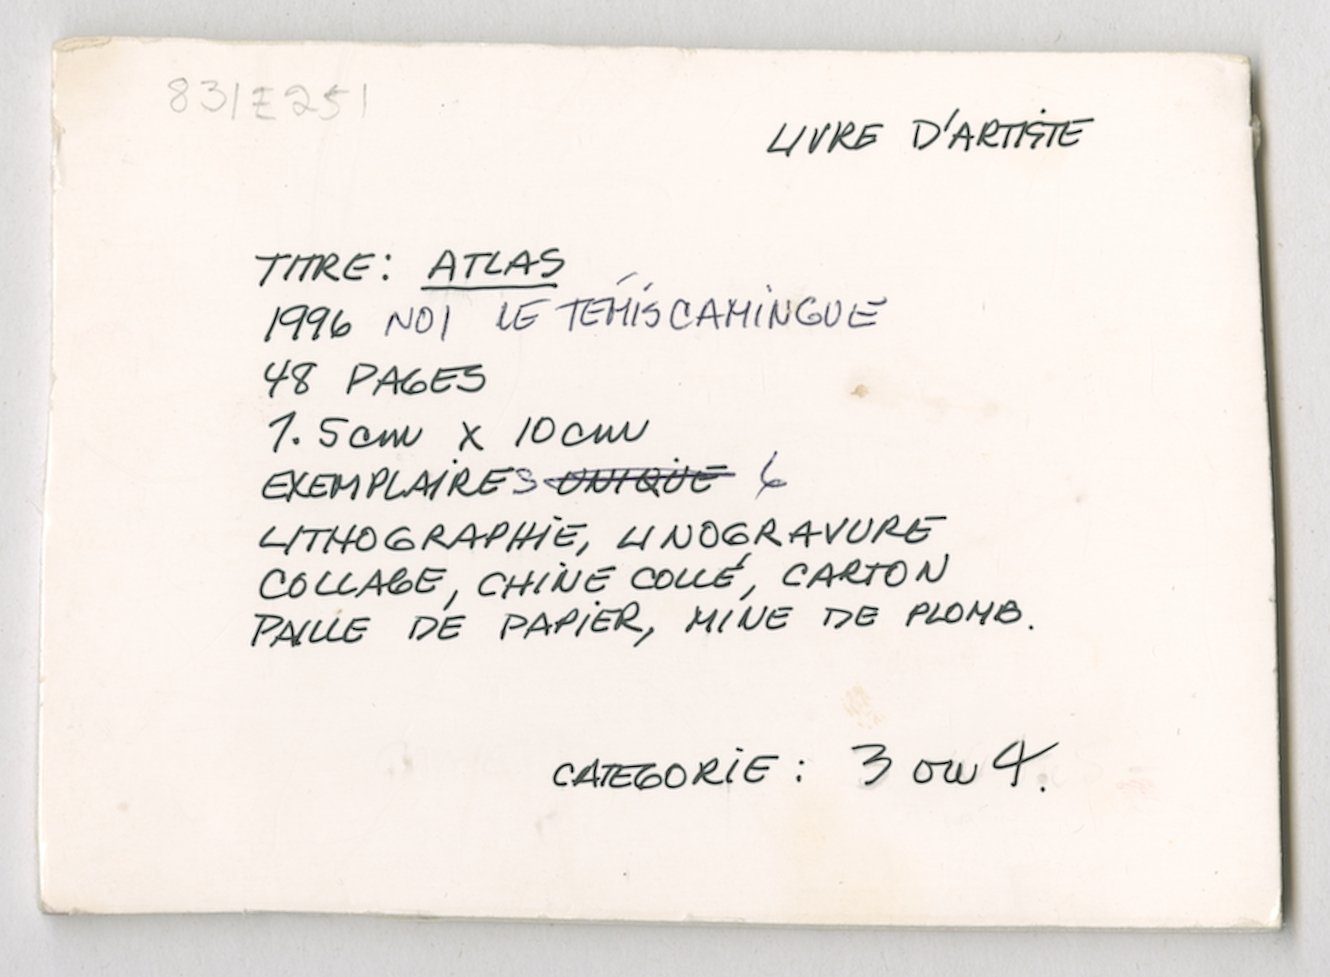 831E251
LIVRE D'ARTISTE
TITRE: ATLAS
1996 NO1 LE TÉMISCAMINGUE
48 PAGES
7.5cm x 10cm
EXEMPLAIRES UNIQUE 6
LITHOGRAPHIE, LINOGRAVURE
COLLAGE, CHINE COLLÉ, CARTON
PAILLE DE PAPIER, MINE DE PLOMB.
CATEGORIE : 3 ou 4.